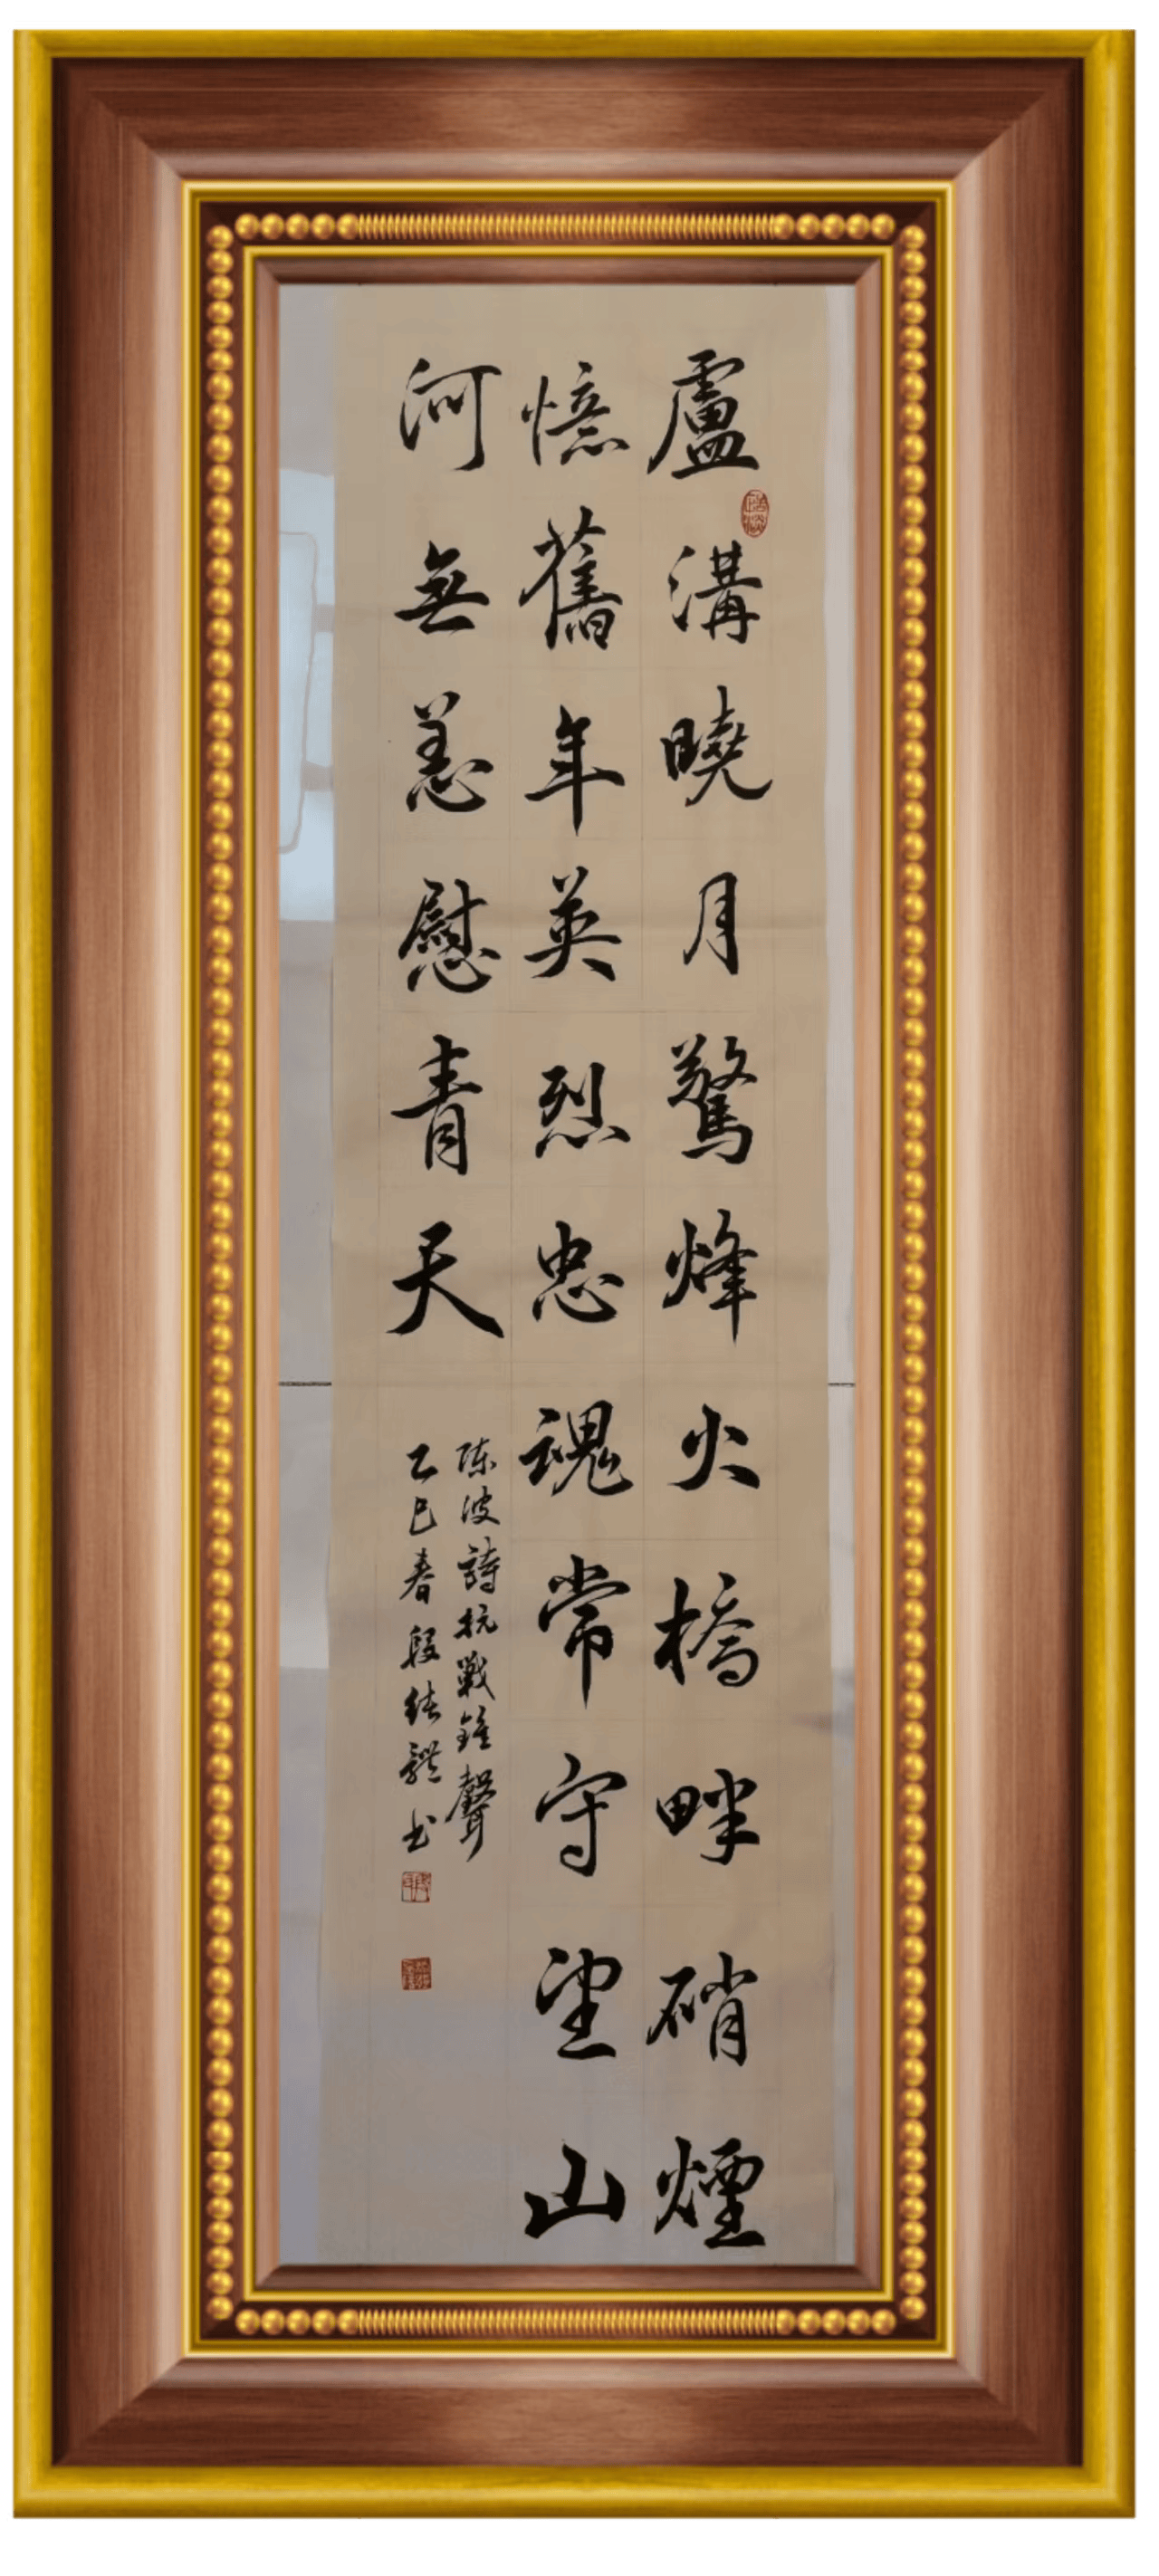 盧溝曉月驚烽火橋畔硝煙
憶舊年英烈忠魂常守望山
河無恙慰青天
陈波詩抗戰鐘聲
乙巳春段結　书